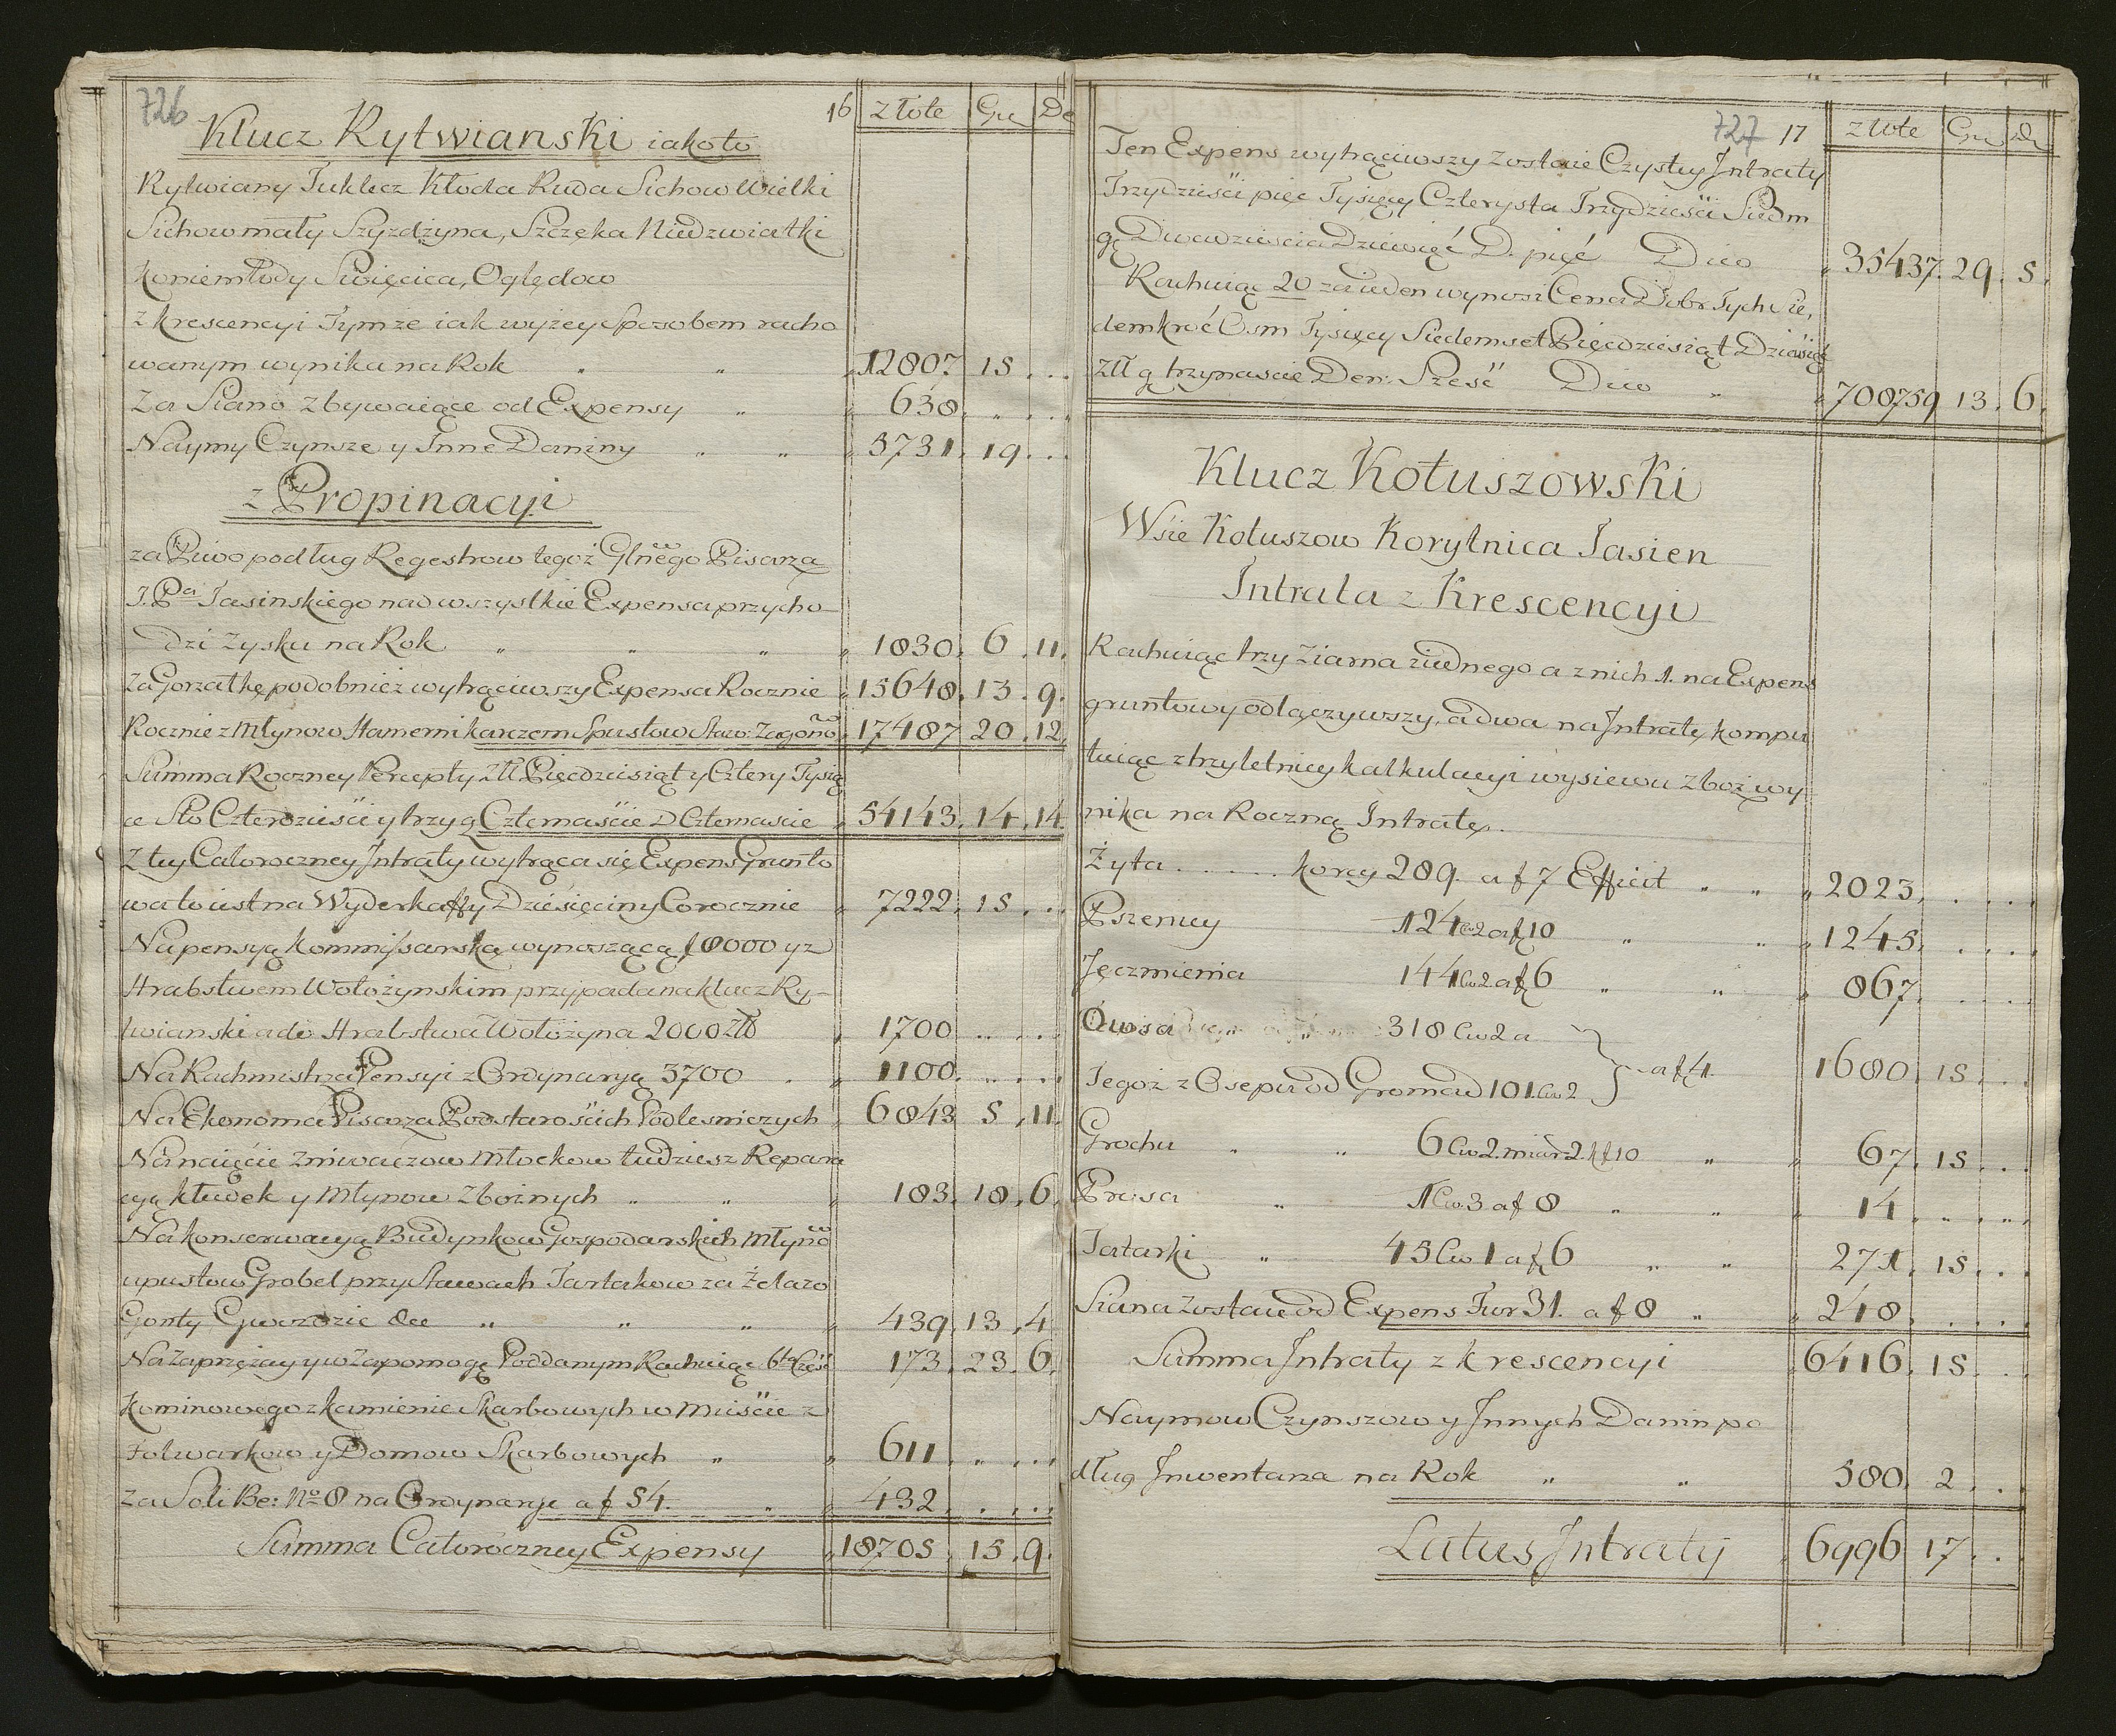 726
16 złote Gr De
Klucz Rytwianski iakoto
Rytwiany Tuklecz Kłoda Ruda Sichow Wielki
Sichow mały Szyzdzyna, Szczęka Niedzwiatki
Koniemłody Swięcica, Oględow
z krescencyi Tymze iak wyżey Sposobem racho
wanym wynika na Rok " " 12807 15 . .
Za Siano zbywaiące od Expensy " 638 . " . .
Naymy Czynsze y Inne Daniny " " 5731 . 19 . .
z Propinacyi
za Piwo podług Regestrow tegoż Głnego Pisarza
J. Pa Jasinskiego nad wszystkie Expensa przycho
dzi Zysku na Rok " " " 1830 . 6 . 11.
Za Gorzałkę podobnież wytrąciwszy Expensa Rocznie 15648 . 13 . 9.
Rocznie z Młynow Hamerni karczem Spustow Staw: Zagono 17487 20 . 12.
Summa Roczney Percepty Złł Pięcdziesiąt y Cztery Tysią
ce Sto Czterdzieście y trzy g Czternaście D Czternascie 54143 . 14 . 14
Z tey Całoroczney Intraty wytrąca się Expens Grunto
wa to iest na Wyderkaffy Dziesięciny Corocznie 7222 . 15 . .
Na pensyą Kommissarską wynoszącą f 8000 y z
Hrabstwem Wołożynskim przypada na klucz Ry-
twianski a do Hrabstwa Wołożyna 2000 złł 1700 . . .
Na Rachmistrza Pensyi z Ordynaryą 3700 . " 1100 . . .
Na Ekonoma Pisarza Podstarościch Podlesniczych 6843 5 . 11.
Na naięcie Zniwaczow Młockow tudziesz Repara
cyą kłudek y Młynow Zbożnych " " 183 . 18 . 6.
Na konserwacyą Budynkow Gospodarskich Młyno
upustow Grobel przy Stawach Tartakow za Żelazo
Gonty Gwozdzie &c " " " 439 . 13 . 4
Na Zaprzężay y w Zapomogę Poddanym Rachuiąc 6tą Częśc 173 . 23 . 6.
Kominowego z kamienic Skarbowych w Mieście z
Folwarkow y Domow Skarbowych " 611 . " . .
Za Soli Be: No 8 na Ordynarye a f 54. " 432 . . . .
Summa Całoroczney Expensy 18705 . 15 . 9.
727 17 złote Gr De
Ten Expens wytrąciwszy Zostaie Czystey Intraty
Trzydzieści pięc Tysięcy Czterysta Trzydzieści Siedm
gę Dwadziescia Dziewięć D. pięć Dico 35437 . 29 . 5.
Rachuiąc 20 za ieden wynosi Cena Dobr Tych Sie,
demkroć Osm Tysięcy Siedemset Pięcdziesiąt Dziewięć
Złł g trzynascie Den: Sześć Dico " 708759 13 . 6.
Klucz Kotuszowski
Wsie Kotuszow Korytnica Jasien
Intrata z Krescencyi
Rachuiąc trzy Ziarna ziednego a z nich 1. na Expens
gruntowy odłączywszy, a dwa na Intratę kompu
tuiąc z trzyletniey kalkulacyi wysiewu Zboż wy
nika na Roczną Intratę.
Żyta . . . . . . korcy 289. a f 7 Efficit " " " 2023 . . . .
Pszenicy 124 Cw 2 a f 10 " " " 1245 . . . .
Jęczmienia 144 Cw 2 a f 6 " " " 867 . . . .
Owsa 318 Cw 2 a
Tegoż z Osepu od Gromad 101 Cw 2 a f 4. 1680 . 15 . .
Grochu " " 6 Cw 2. miar 2. f 10 " " 67 . 15 . .
Prosa " 1 Cw 3 a f 8 " " " 14 . " . "
Tatarki " 45 Cw 1 a f 6 " " 271 . 15 . .
Siana Zostaie od Expens Fur 31. a f 8 " " 248 . . . .
Summa Intraty z krescencyi 6416 . 15 . .
Naymow Czynszow y Innych Danin po
dług Inwentarza na Rok " " 580 . 2 . .
Latus Intraty 6996 17 . .